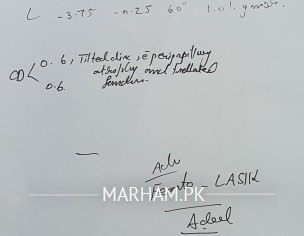 L -3.75 -0.25 60° 1.0
CD 0.6, Tilted disc, c̄ peripapillary
atrophy and tessellated
0.6 fundus.
Adv
Femto - LASIK
MARHAM.PK
Adeel